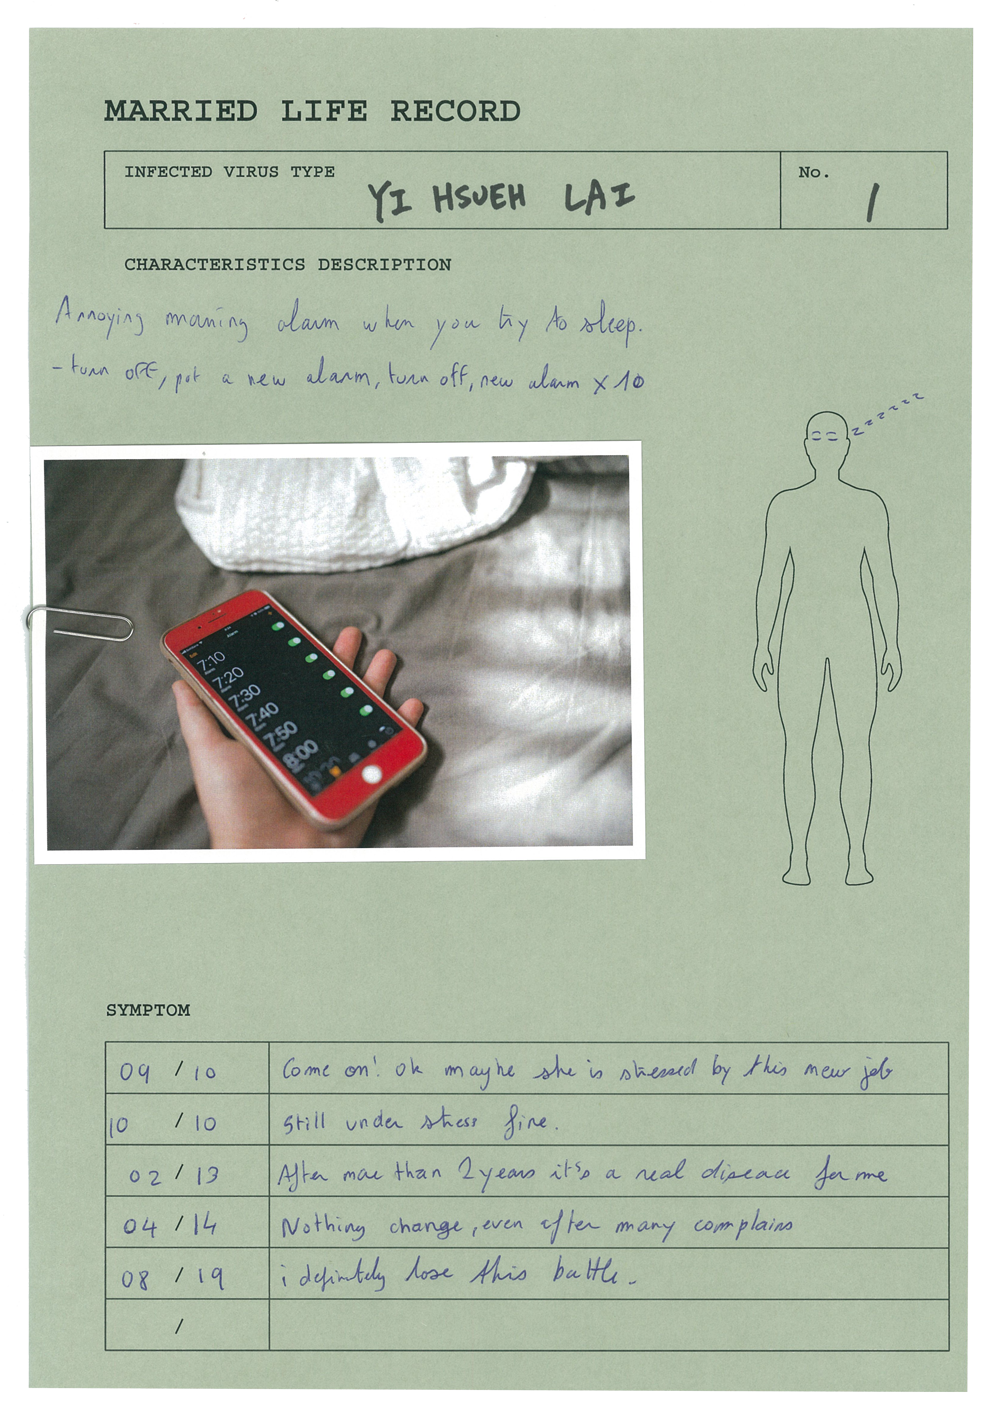 MARRIED LIFE RECORD
INFECTED VIRUS TYPE
YI HSUEH LAI
No.
1
CHARACTERISTICS DESCRIPTION
Annoying morning alarm when you try to sleep.
- turn off, put a new alarm, turn off, new alarm x 10
z z z z z z z
7:10
7:20
7:30
7:40
7:50
8:00
SYMPTOM
09 / 10 Come on! ok maybe she is stressed by this new job
10 / 10 Still under stress fine.
02 / 13 After more than 2 years it's a real disease for me
04 / 14 Nothing change, even after many complains
08 / 19 i definitely lose this battle.
/